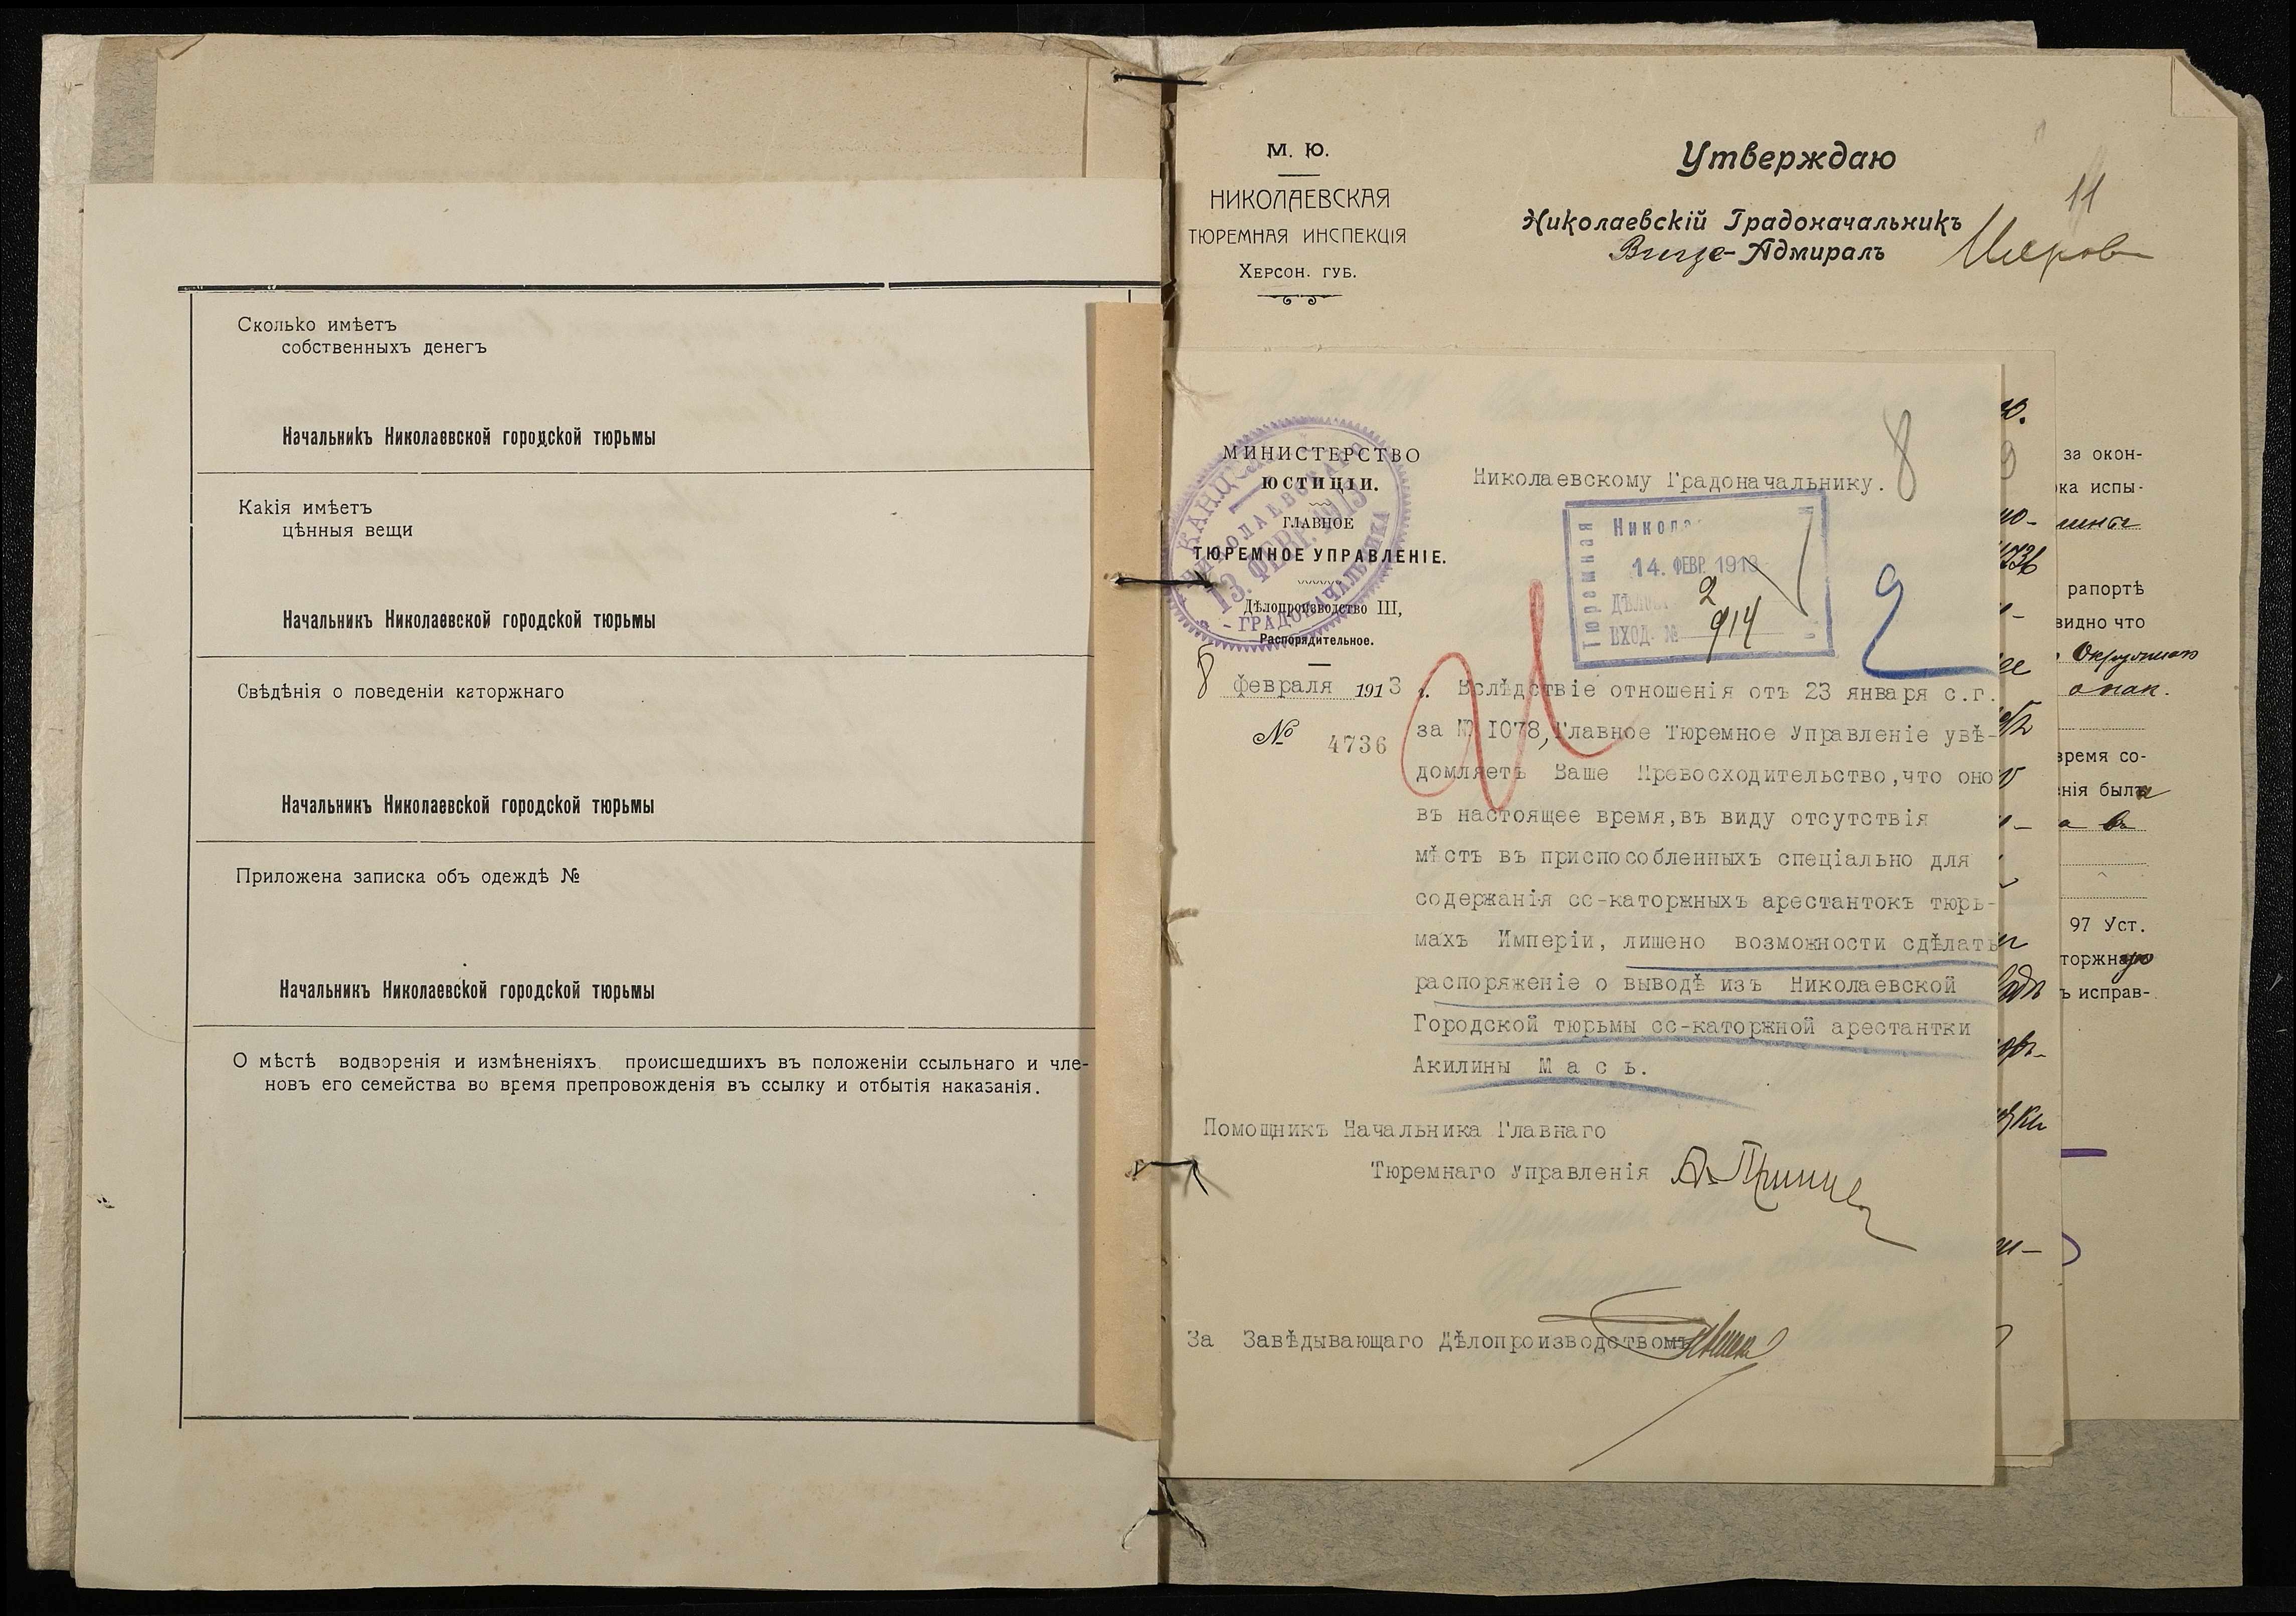 Сколько имѣетъ
собственныхъ денегъ
Начальникъ Николаевской городской тюрьмы
Какія имѣетъ
цѣнныя вещи
Начальникъ Николаевской городской тюрьмы
Свѣдѣнія о поведеніи каторжнаго
Начальникъ Николаевской городской тюрьмы
Приложена записка объ одеждѣ №
Начальникъ Николаевской городской тюрьмы
О мѣстѣ водворенія и измѣненіяхъ происшедшихъ въ положеніи ссыльнаго и чле-
новъ его семейства во время препровожденія въ ссылку и отбытія наказанія.
М. Ю.
НИКОЛАЕВСКАЯ
ТЮРЕМНАЯ ИНСПЕКЦІЯ
ХЕРСОН. ГУБ.
Утверждаю
11
Николаевскій Градоначальникъ
Вице-Адмиралъ
МИНИСТЕРСТВО
ЮСТИЦІИ.
ГЛАВНОЕ
ТЮРЕМНОЕ УПРАВЛЕНІЕ.
Дѣлопроизводство III,
Распорядительное.
8 февраля 1913 г.
№ 4736
КАНЦЕЛЯРІЯ НИКОЛАЕВСКАГО
13. ФЕВР. 1913
ГРАДОНАЧАЛЬНИКА
8
Николаевскому Градоначальнику.
Тюремная
Никола
14. ФЕВР. 1913
2
ВХОД. № 914
2
Вслѣдствіе отношенія отъ 23 января с.г.
за № 1078, Главное Тюремное Управленіе увѣ-
домляетъ Ваше Превосходительство, что оно
въ настоящее время, въ виду отсутствія
мѣстъ въ приспособленныхъ спеціально для
содержанія сс-каторжныхъ арестантокъ тюрь-
махъ Имперіи, лишено возможности сдѣлать
распоряженіе о выводѣ изъ Николаевской
Городской тюрьмы сс-каторжной арестантки
Акилины М а с ь.
Помощникъ Начальника Главнаго
Тюремнаго Управленія
За Завѣдывающаго Дѣлопроизводствомъ
за окон-
ка испы-
рапортѣ
видно что
время со-
нія была
97 Уст.
торжную
ъ исправ-